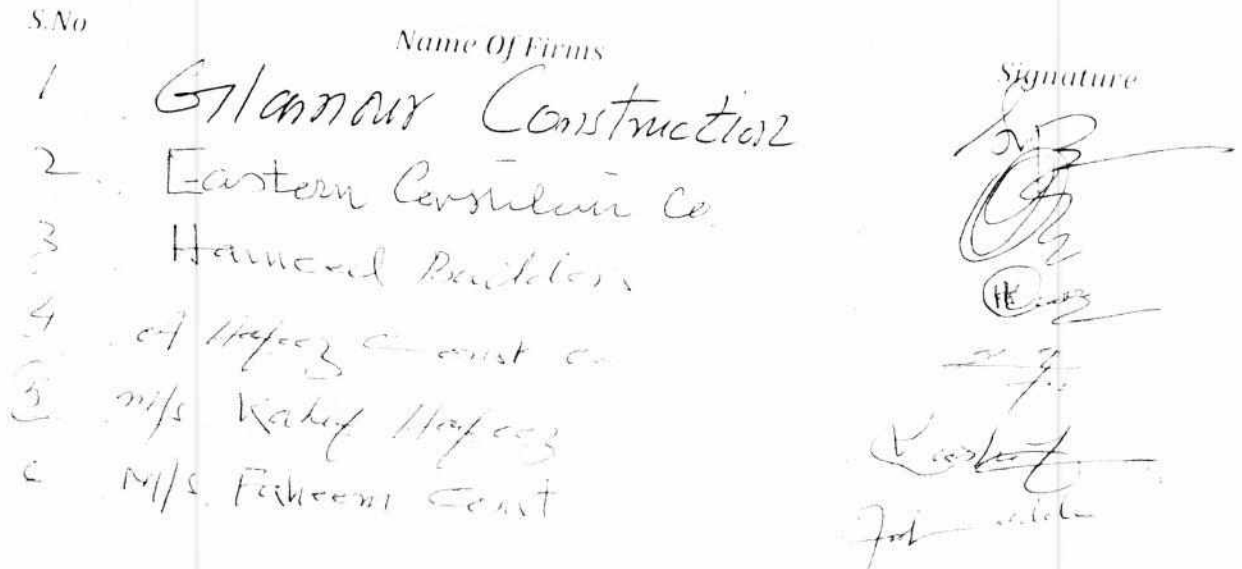 S.No Name Of Firms Signature
1 Glamour Construction
2 Eastern Co.
3 Hameed Builders
4 A Hafeez Const Co
5 M/s Kahif Hafeez Kashif
6 M/s Faheem Const